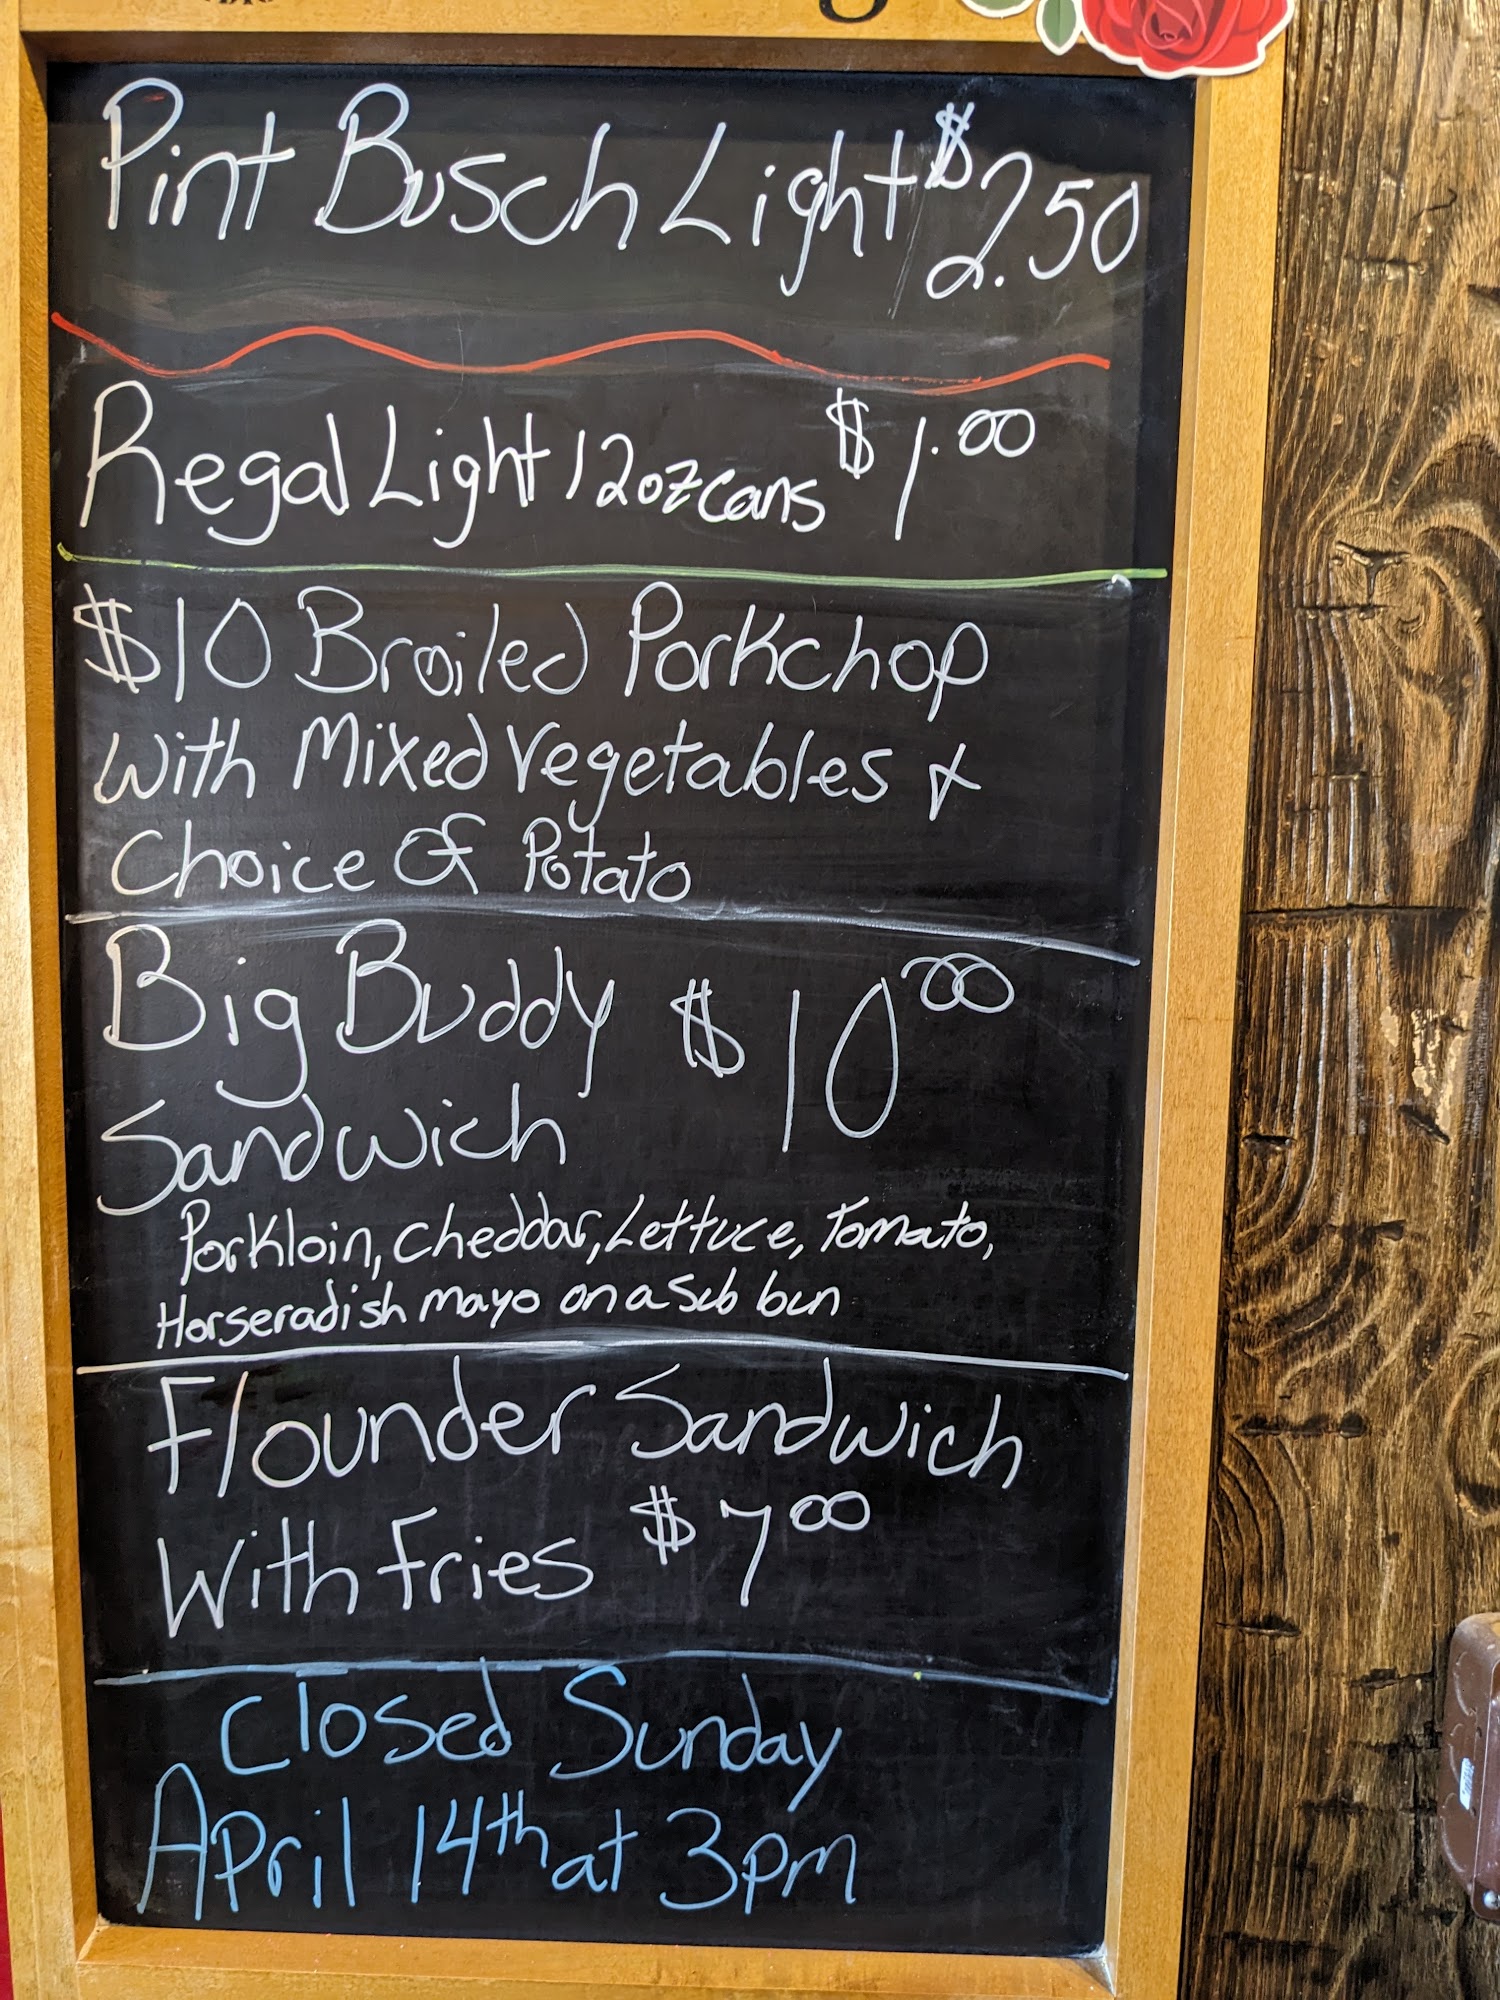 Pint Busch Light $2.50
Regal Light 12oz cans $1.00
$10 Broiled Porkchop
with Mixed Vegetables &
Choice Of Potato
Big Buddy $10.00
Sandwich
Porkloin, Cheddar, Lettuce, Tomato,
Horseradish mayo on a Sub bun
Flounder Sandwich
With Fries $7.00
Closed Sunday
April 14th at 3pm